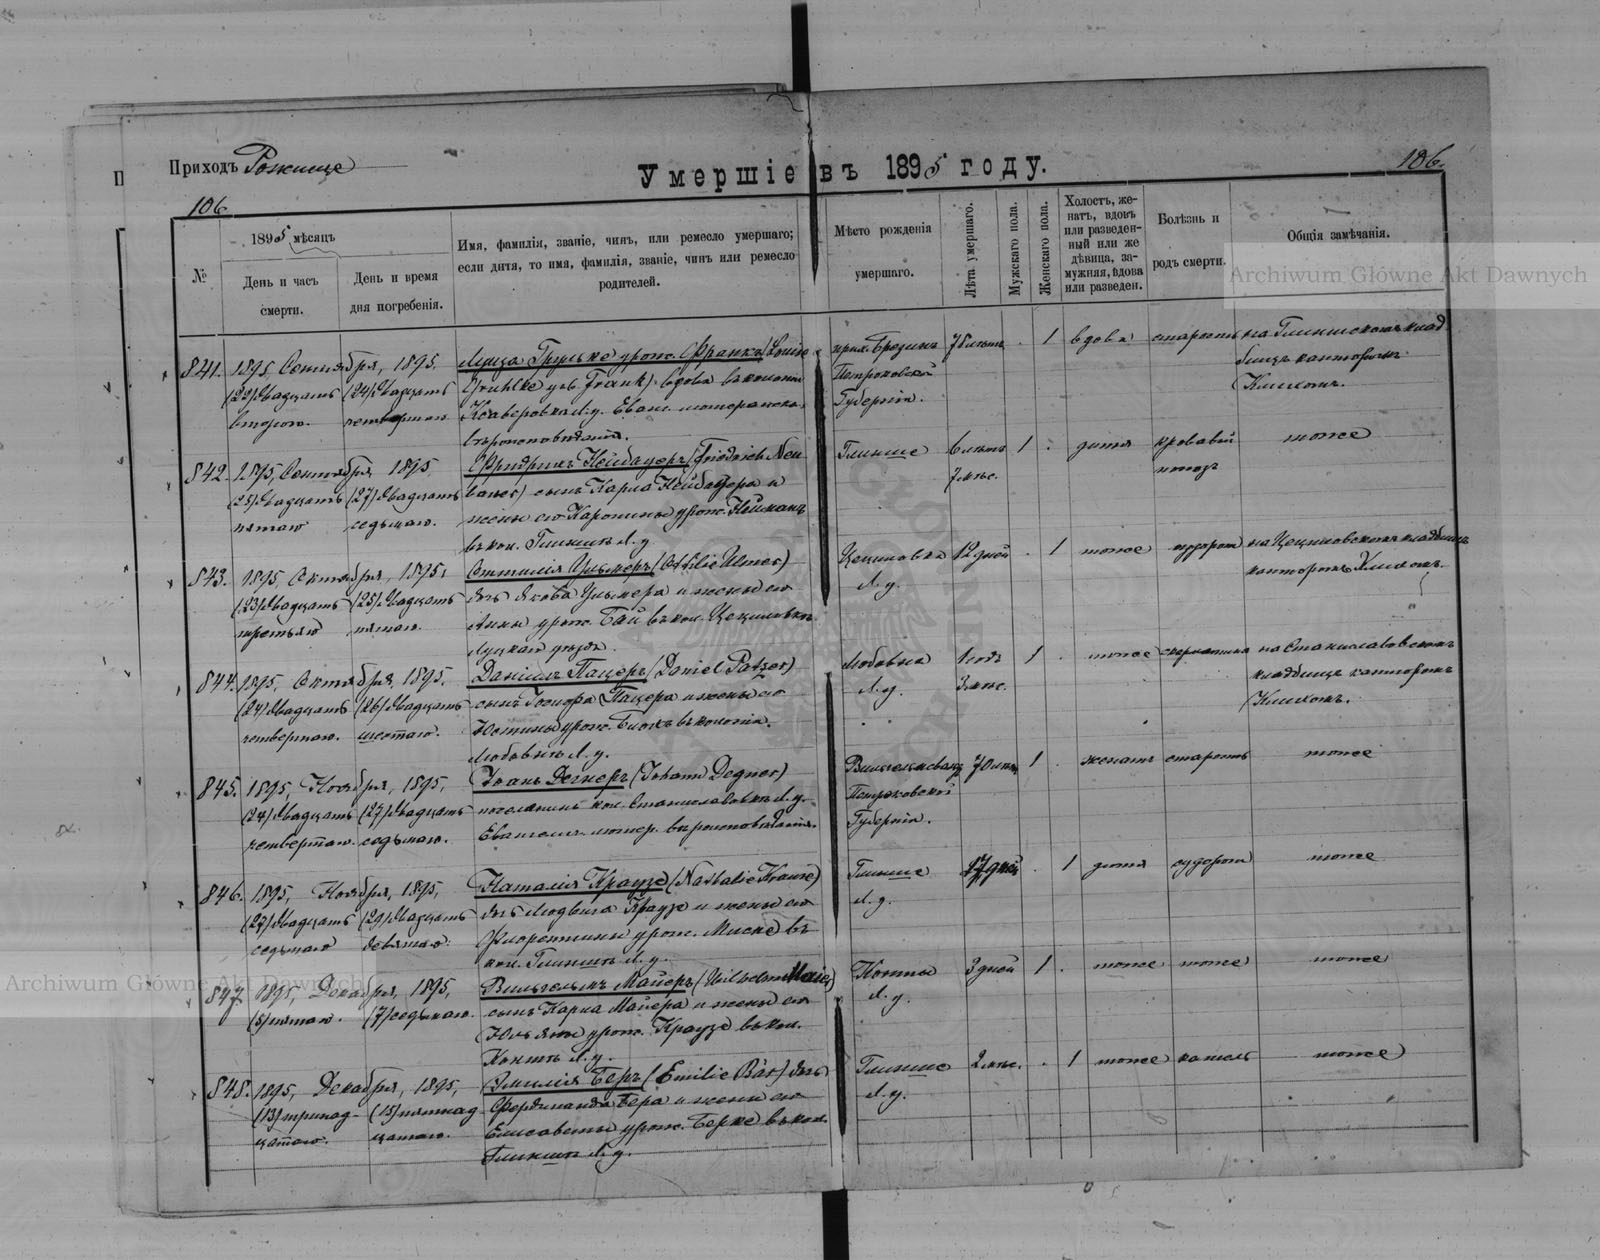 Приходъ Рожище
Умершіе въ 1895 году.
106.
106
№
1895 мѣсяцъ
День и часъ смерти.
День и время дня погребенія.
Имя, фамилія, званіе, чинъ, или ремесло умершаго;
если дитя, то имя, фамилія, званіе, чинъ или ремесло
родителей.
Мѣсто рожденія
умершаго.
Лѣта умершаго.
Мужскаго пола.
Женскаго пола.
Холостъ, же-
натъ, вдовъ
или разведен-
ный или же
дѣвица, за-
мужняя, вдова
или разведен.
Болѣзнь и
родъ смерти.
Общія замѣчанія.
Archiwum Główne Akt Dawnych
841. 1895 Сентября, 1895. Луиза Грульке урож. Франкъ (Louise прих. Брезинъ 1 вдова старость на Глинищскомъ клад
(22) двадцать (24) двадцать Gruhlke geb. Frank) вдова въ колоніи Петроковской бищѣ канторомъ
второго. четвертаго. Ксаверовка Л.у. Еванг. лютеранска. Губерніи. Климомъ.
вѣроисповѣданія.
842. 1895, Сентября, 1895 Фридрихъ Нейбауеръ (Friedrich Neu Глинище 6 лѣтъ 1 дитя кровавый тоже
(25) двадцать (27) двадцать bauer) сынъ Карла Нейбауера и 7 мѣс. поносъ
пятаго седьмаго. жены его Каролины урож. Нейманъ
въ кол. Глинищѣ Л.у.
843. 1895 Октября, 1895, Оттилія Ульмеръ (Ottilie Ulmer) Цециловка 12 дней 1 тоже на Цециловскомъ кладбищѣ
(23) двадцать (25) двадцать дочь Якова Ульмера и жены его Л.у. канторомъ Климомъ.
третьяго пятаго. Анны урож. Бай въ кол. Цециловкѣ
Луцкаго уѣзда.
844. 1895, Октября, 1895. Даніилъ Пацеръ (Daniel Patzer) Любовна 1 годъ 1 тоже скарлатина на Станиславовскомъ
(24) двадцать (26) двадцать сынъ Пацера и жены его Л.у. 3 мѣс. кладбищѣ канторомъ
четвертаго. шестаго. Юстины урож. въ колоніи Климомъ.
Любовнѣ Л.у.
845. 1895, Ноября, 1895, Иванъ Дегнеръ (Johann Degner) 70 лѣтъ 1 женатъ старость тоже
(24) двадцать (27) двадцать поселянинъ кол. Станиславовка Л.у. Петроковской
четвертаго. седьмаго. Евангел. лютер. вѣроисповѣданія. Губерніи.
846. 1895, Ноября, 1895, Наталія Краузе (Nathalie Krause) Глинище 17 дней 1 дитя судороги тоже
(27) двадцать (29) двадцать дочь Людвига Краузе и жены его Л.у.
седьмаго девятаго. Флорентины урож. Миске въ
кол. Глинищѣ Л.у.
Archiwum Główne Akt Dawnych
847. 1895, Декабря, 1895, Вильгельмъ Майеръ (Wilhelm Maier) Копты 3 дней 1 тоже тоже тоже
(5) пятаго. (7) седьмаго. сынъ Карла Майера и жены его Л.у.
Юльяны урож. Краузе въ кол.
Л.у.
848. 1895, Декабря, 1895, Эмилія Беръ (Emilie Bär) дочь Глинище 2 мѣс. 1 тоже кашель тоже
(13) тринад- (15) пятнад Фердинанда Бера и жены его Л.у.
цатаго. цатаго. Елисаветы урож. Берке въ кол.
Глинищѣ Л.у.